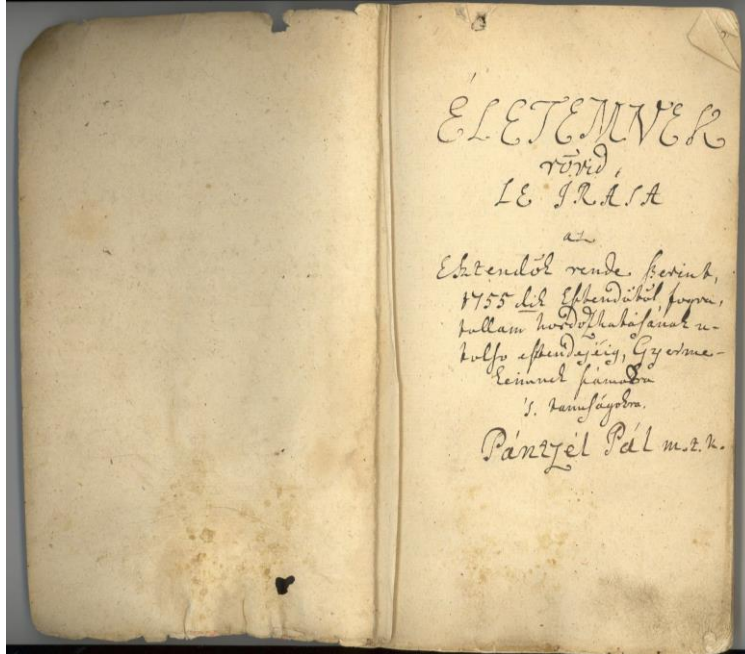 ÉLETEMNEK
rövid,
LE IRÁSA
az
Esztendök rende szerint,
1755dik Esztendötöl fogva,
tollam hordozhatásának u-
tolso esztendejéig, Gyerme-
keimnek számokra
's tanuságokra.
Pántzél Pál m.t.k.